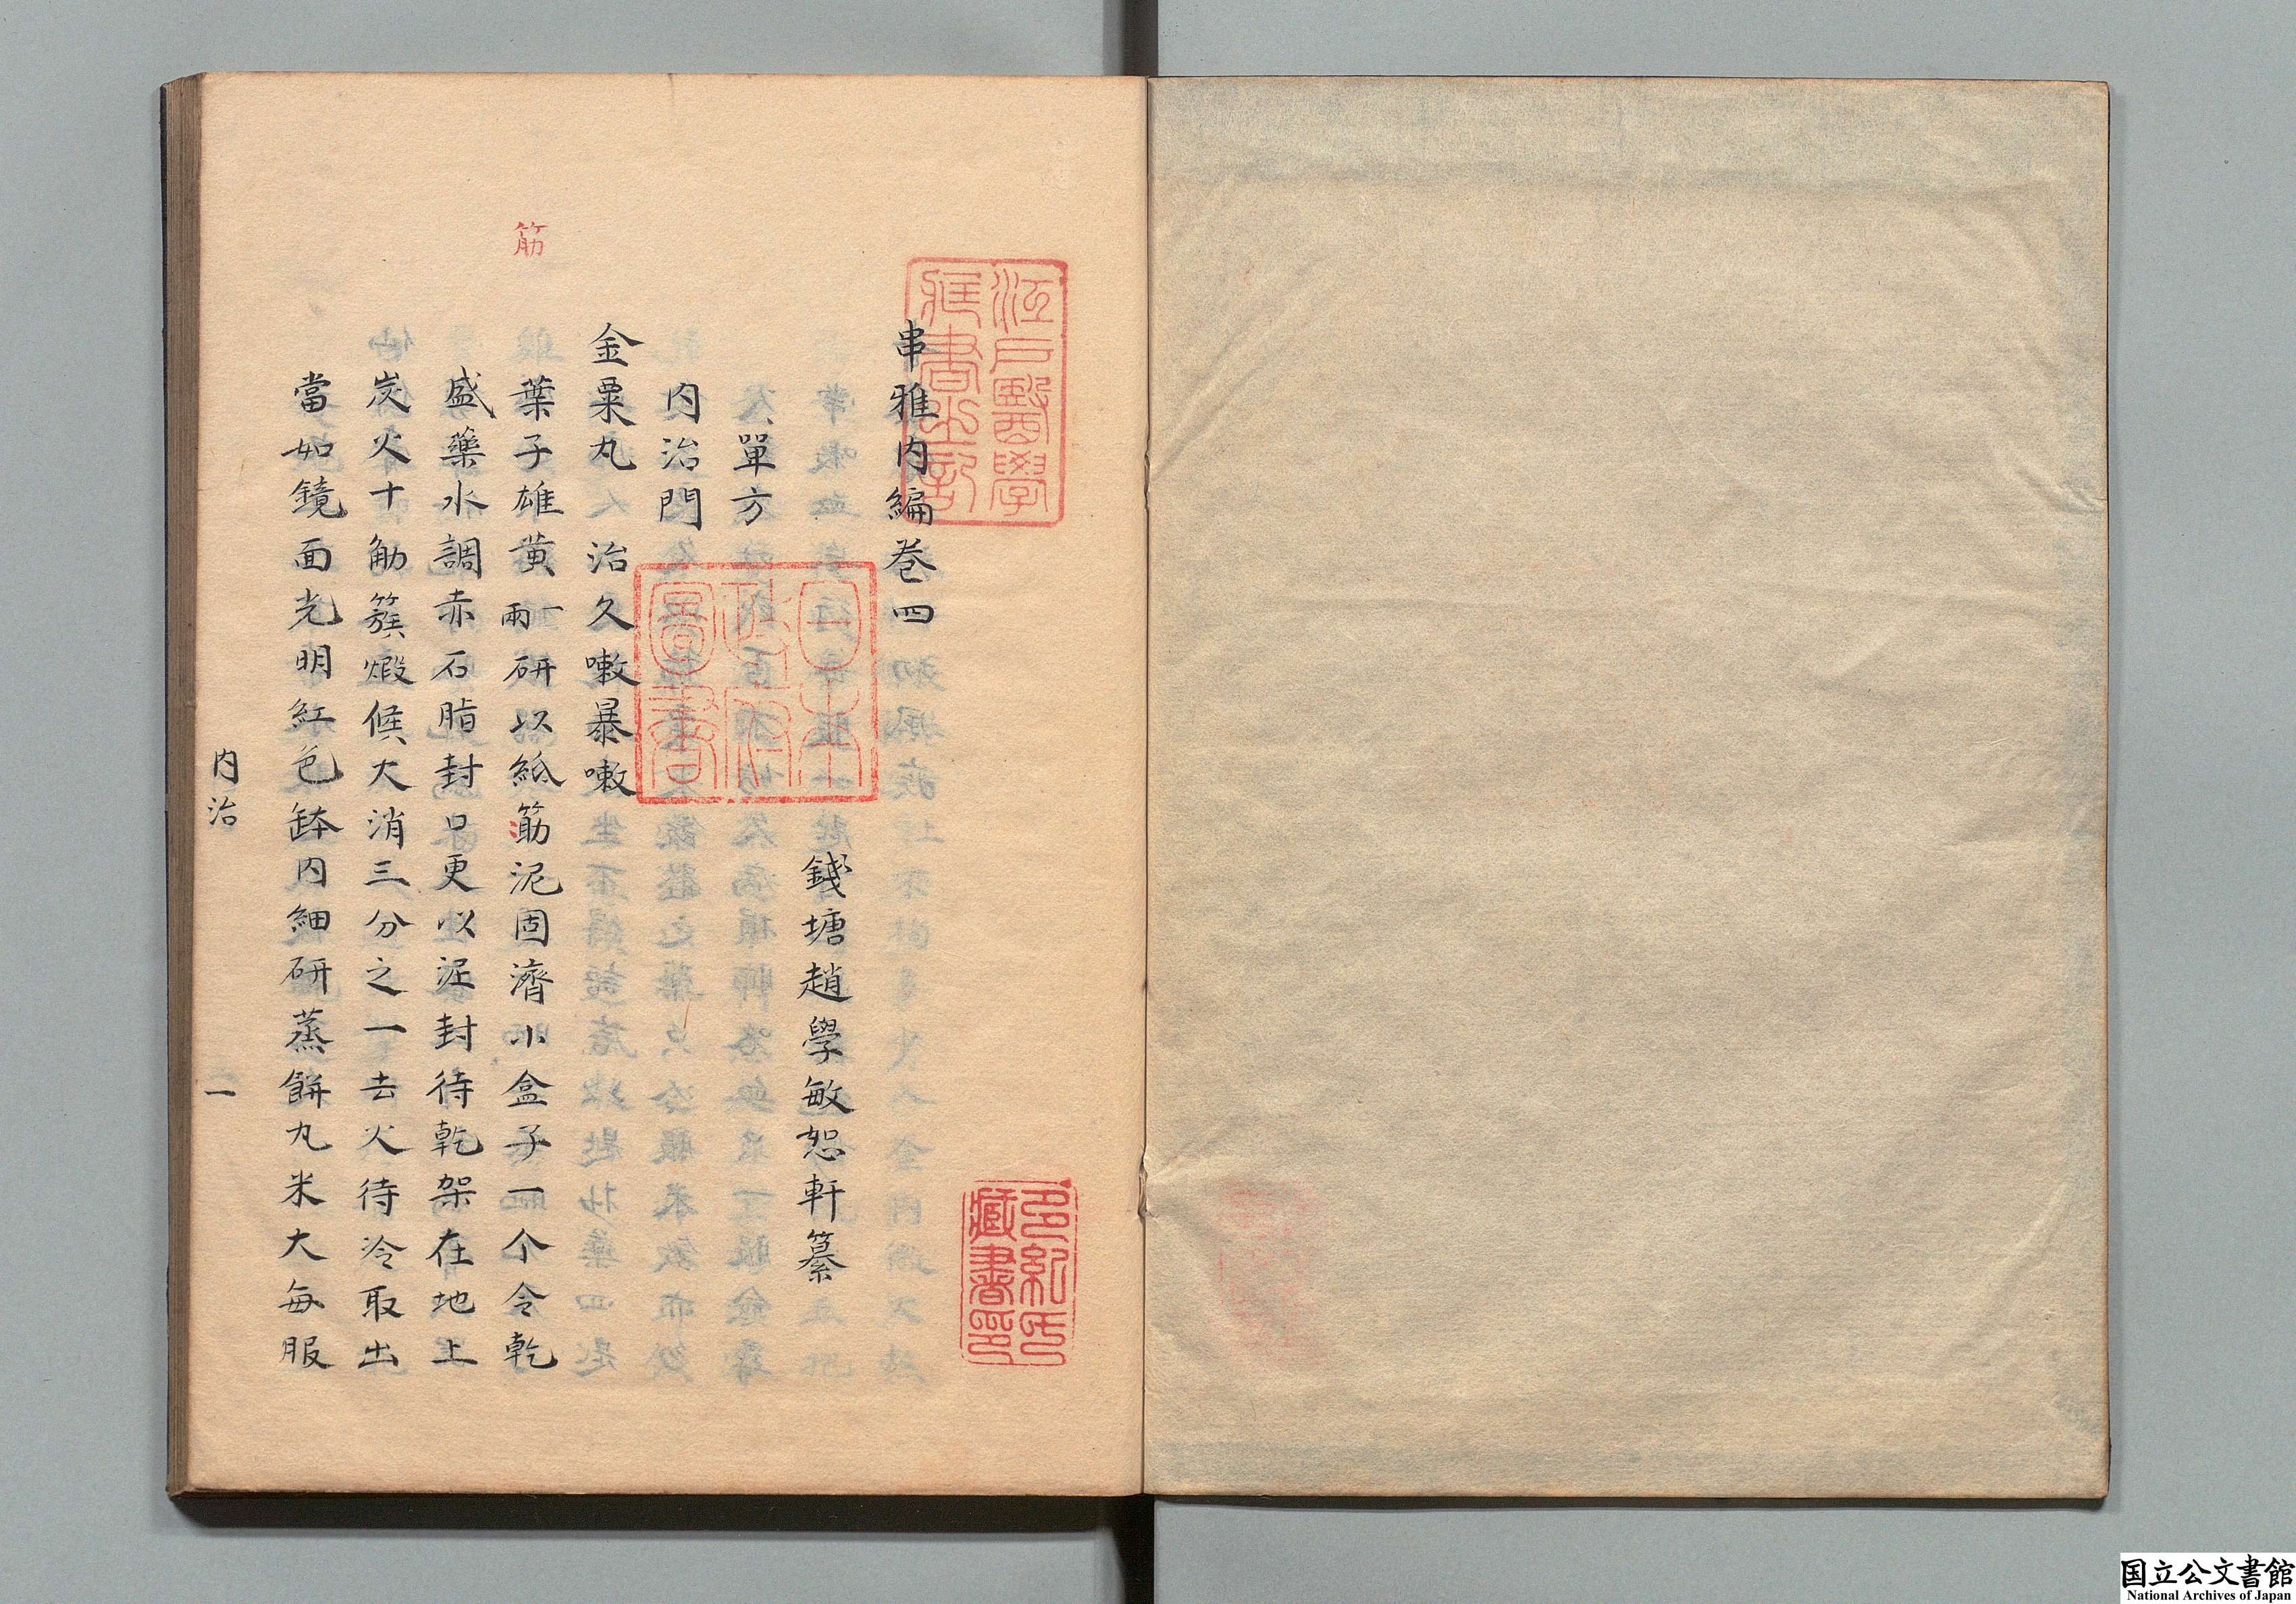 江戶醫學
藏書之記
串雅内編卷四
錢塘趙學敏恕軒纂
單方
内治門
金粟丸治久嗽暴嗽
葉子雄黄一兩研以紙筋泥固濟小盒子一个令乾
盛藥水調赤石脂封口更以泥封待乾架在地上
炭火十觔簇煅候大消三分之一去火待冷取出
當如鏡面光明紅色鉢内細研蒸餅丸米大每服
筋
内治
一
日本
政府
圖書
多紀氏
藏書印
国立公文書館
National Archives of Japan